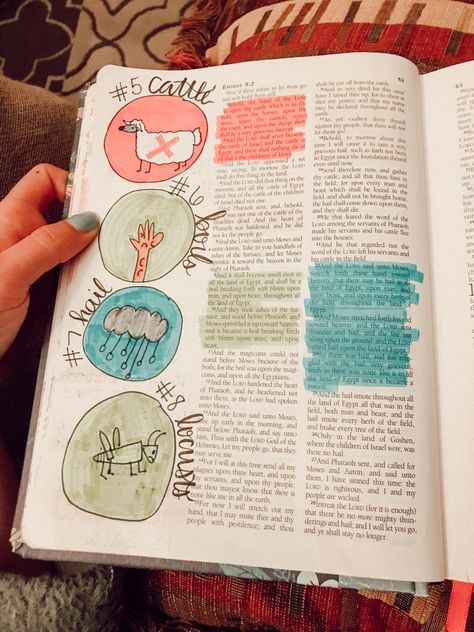 62
63
#5 Cattle
#6 boils
#7 hail
#8 locusts
EXODUS 9:2
Behold, the hand of the LORD
is upon thy cattle which is in the
field, upon the horses, upon the
asses, upon the camels, upon
the oxen, and upon the sheep:
And the LORD shall sever between
the cattle of Israel and the cattle of
Egypt: and there shall nothing die
of all that is the children's of Israel.
And the LORD appointed a set
time, saying, To morrow the LORD
shall do this thing in the land.
And the LORD did that thing on
the morrow, and all the cattle of Egypt
died: but of the cattle of the children
of Israel died not one.
And Pharaoh sent, and, behold,
was not one of the cattle of the
dead. And the heart of
Pharaoh was hardened, and he did
not let the people go.
And the LORD said unto Moses
and unto Aaron, Take to you handfuls
of ashes of the furnace, and let Moses
sprinkle it toward the heaven in the
sight of Pharaoh.
And it shall become small dust in
all the land of Egypt, and shall be a
boil breaking forth with blains upon
man, and upon beast, throughout all
the land of Egypt.
And they took ashes of the furnace,
and stood before Pharaoh; and Moses
sprinkled it up toward heaven;
and it became a boil breaking forth
with blains upon man, and upon
beast.
And the magicians could not
stand before Moses because of the
boils; for the boil was upon the magicians,
and upon all the Egyptians.
And the LORD hardened the heart
of Pharaoh, and he hearkened not
unto them; as the LORD had spoken
unto Moses.
And the LORD said unto Moses,
Rise up early in the morning, and
stand before Pharaoh, and say unto
him, Thus saith the LORD God of the
Hebrews, Let my people go, that they
may serve me.
For I will at this time send all my
plagues upon thine heart, and upon
thy servants, and upon thy people;
that thou mayest know that there is
none like me in all the earth.
For now I will stretch out my
hand, that I may smite thee and thy
people with pestilence; and thou
shalt be cut off from the earth.
And in very deed for this cause
have I raised thee up, for to shew in
thee my power; and that my name
may be declared throughout all the
earth.
As yet exaltest thou thyself
against my people, that thou wilt not
let them go?
Behold, to morrow about this
time I will cause it to rain a very
grievous hail, such as hath not been
in Egypt since the foundation thereof
even until now.
Send therefore now, and gather
thy cattle, and all that thou hast in
the field; for upon every man and
beast which shall be found in the
field, and shall not be brought home,
the hail shall come down upon them,
and they shall die.
He that feared the word of the
LORD among the servants of Pharaoh
made his servants and his cattle flee
into the houses:
And he that regarded not the
word of the LORD left his servants
and his cattle in the field.
And the LORD said unto Moses,
Stretch forth thine hand toward
heaven, that there may be hail in all
the land of Egypt, upon man, and
upon beast, and upon every herb
of the field, throughout the land of
Egypt.
And Moses stretched forth his
rod toward heaven: and the LORD
sent thunder and hail, and the fire ran
along upon the ground; and the LORD
rained hail upon the land of Egypt.
So there was hail, and fire mingled
with the hail, very grievous,
such as there was none like it in all
the land of Egypt since it became a
nation.
And the hail smote throughout all
the land of Egypt all that was in the
field, both man and beast; and the
hail smote every herb of the field,
and brake every tree of the field.
Only in the land of Goshen,
where the children of Israel were, was
there no hail.
And Pharaoh sent, and called for
Moses and Aaron, and said unto
them, I have sinned this time: the
LORD is righteous, and I and my
people are wicked.
Intreat the LORD (for it is enough)
that there be no more mighty thunderings
and hail; and I will let you go,
and ye shall stay no longer.